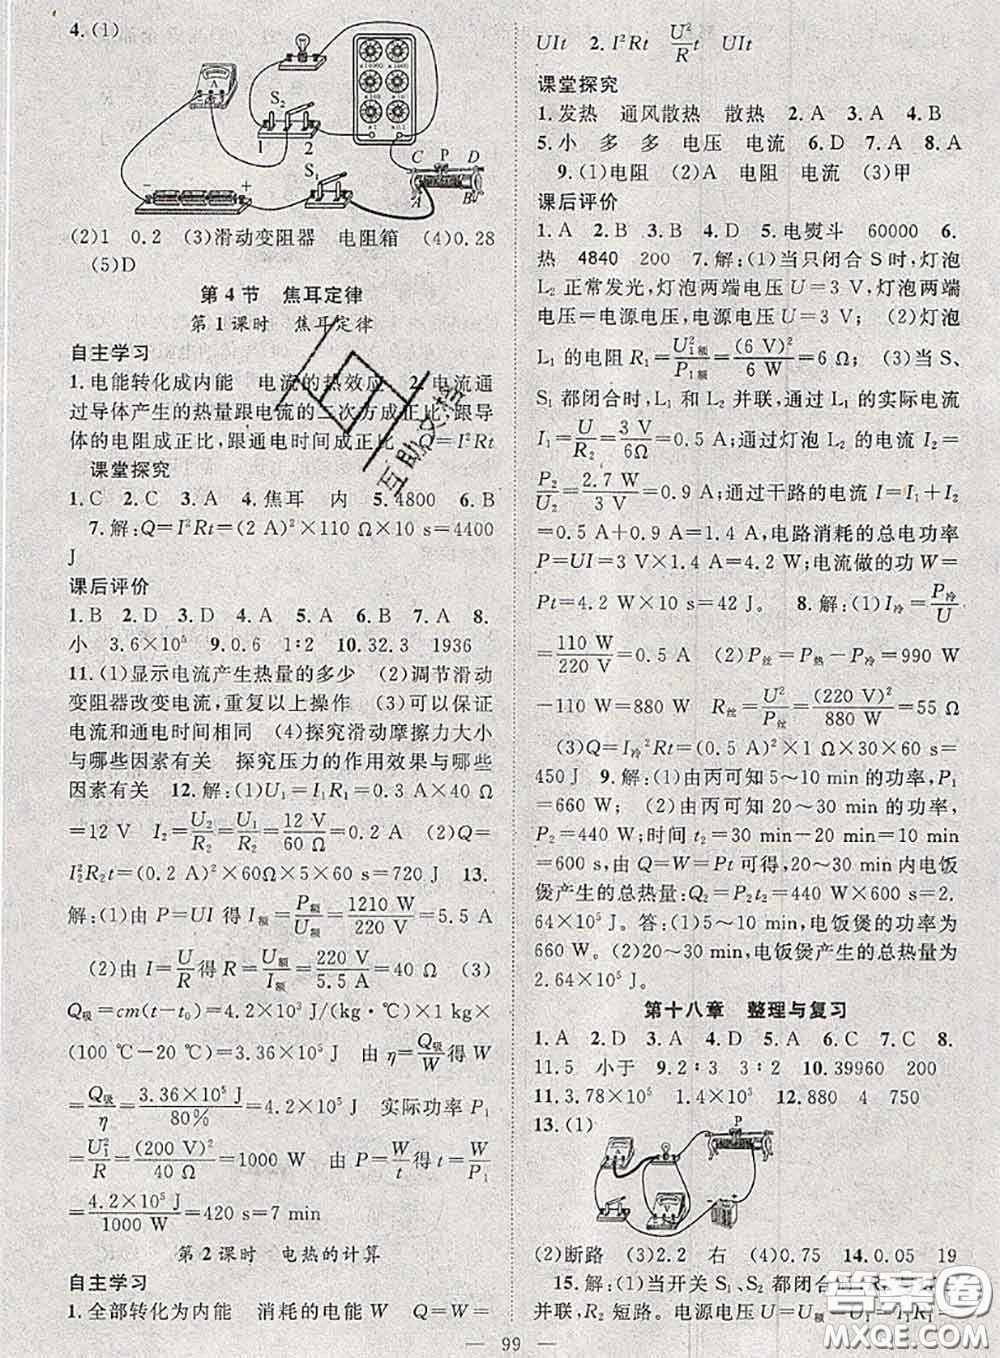 4.(1)
A
S₂
1 2
S₁
C P D
A B
− +
(2)1 0.2 (3)滑动变阻器 电阻箱 (4)0.28
(5)D
第4节 焦耳定律
第1课时 焦耳定律
自主学习
1.电能转化成内能 电流的热效应 2.电流通
过导体产生的热量跟电流的二次方成正比,跟导
体的电阻成正比,跟通电时间成正比 Q=I²Rt
课堂探究
1.C 2.C 3.A 4.焦耳 内 5.4800 6.B
7.解:Q=I²Rt=(2 A)²×110 Ω×10 s=4400
J
课后评价
1.B 2.D 3.D 4.A 5.A 6.A 7.A 8.
小 3.6×10⁵ 9.0.6 1∶2 10.32.3 1936
11.(1)显示电流产生热量的多少 (2)调节滑动
变阻器改变电流,重复以上操作 (3)可以保证
电流和通电时间相同 (4)探究滑动摩擦力大小
与哪些因素有关 探究压力的作用效果与哪些
因素有关 12.解:(1)U₁=I₁R₁=0.3 A×40 Ω
=12 V I₂=U₂/R₂=U₁/R₂=12 V/60 Ω=0.2 A (2)Q=
I₂²R₂t=(0.2 A)²×60Ω×5×60 s=720 J 13.
解:(1)由 P=UI 得 I额=P额/U额=1210 W/220 V=5.5 A
(2)由 I=U/R得 R=U额/I额=220 V/5.5 A=40 Ω (3)
Q吸=cm(t−t₀)=4.2×10³ J/(kg·℃)×1 kg×
(100 ℃−20 ℃)=3.36×10⁵ J 由 η=Q吸/W得 W
=Q吸/η=3.36×10⁵ J/80%=4.2×10⁵ J 实际功率 P₁
=U₁²/R=(200 V)²/40 Ω=1000 W 由 P=W/t得 t=W/P₁
=4.2×10⁵ J/1000 W=420 s=7 min
第2课时 电热的计算
自主学习
1.全部转化为内能 消耗的电能 W Q=W=
UIt 2.I²Rt U²/R t UIt
课堂探究
1.发热 通风散热 散热 2.A 3.A 4.B
5.小 多 多 电压 电流 6.D 7.A 8.A
9.(1)电阻 (2)A 电阻 电流 (3)甲
课后评价
1.A 2.B 3.B 4.D 5.电熨斗 60000 6.
热 4840 200 7.解:(1)当只闭合 S 时,灯泡
L₂ 正常发光,灯泡两端电压 U=3 V,灯泡两端
电压=电源电压,电源电压 U=3 V; (2)灯泡
L₁ 的电阻 R₁=U₁额²/P₁额=(6 V)²/6 W=6 Ω; (3)当 S、
S₁ 都闭合时,L₁ 和 L₂ 并联,通过 L₁ 的实际电流
I₁=U/R₂=3 V/6Ω=0.5 A;通过灯泡 L₂ 的电流 I₂=
P₂/U₂=2.7 W/3 V=0.9 A;通过干路的电流 I=I₁+I₂
=0.5 A+0.9 A=1.4 A,电路消耗的总电功率
P=UI=3 V×1.4 A=4.2 W;电流做的功 W=
Pt=4.2 W×10 s=42 J。 8.解:(1)I冷=P冷/U
=110 W/220 V=0.5 A (2)P丝=P热−P冷=990 W
−110 W=880 W R丝=U²/P丝=(220 V)²/880 W=55 Ω
(3)Q=I冷²Rt=(0.5 A)²×2 Ω×15×60 s=
450 J 9.解:(1)由丙可知5~10 min的功率,P₁
=660 W; (2)由丙可知20~30 min的功率,
P₂=440 W;时间 t₂=30 min−20 min=10 min
=600 s,由 Q=W=Pt 可得,20~30 min内电饭
煲产生的总热量:Q₂=P₂t₂=440 W×600 s=2.
64×10⁵ J。答:(1)5~10 min,电饭煲的功率为
660 W。(2)20~30 min,电饭煲产生的总热量为
2.64×10⁵ J。
第十八章 整理与复习
1.A 2.D 3.A 4.D 5.A 6.D 7.C 8.
11.5 小于 9.2∶3 3∶2 10.39960 200
11.3.78×10⁵ 1.4×10³ 12.880 4 750
13.(1)
P
(2)断路 (3)2.2 右 (4)0.75 14.0.05 19
15.解:(1)当开关 S₁、S₂ 都闭合时,R₁ 与灯
并联,R₂ 短路。电源电压 U=U额=U₁=I₁R₁=
99
互助文摘
答案圈
MXQE.COM